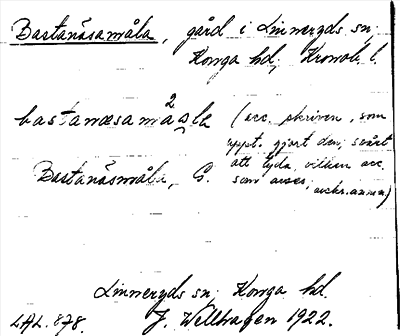 Bastanäsamåla, gård i Linneryds sn;
Konga hd; Kronob. l.
2
bastanæsamåla (acc. skriven, som
uppt. gjort den; svårt
att tyda, vilken acc.
Bastanäsmåla, G. som avses,
Linneryds sn; Konga hd.
LAL. 878. J. Wellhagen 1922.